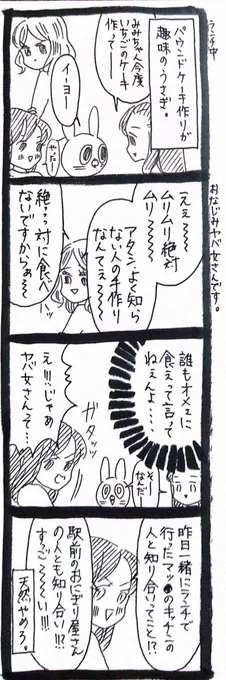 ランチ中
パウンドケーキ作りが
趣味のうさぎ。
みみちゃん今度
いちごのケーキ
作ってー
イーヨー
やった
おなじみヤバ女さんです。
えぇ〜〜〜
ムリムリ絶対
ムリ〜〜〜
アタシよく知ら
ない人の手作り
なんてぇ〜〜
絶ッッ対に食べ
ないですからぁ〜
誰もオメェに
食えって言って
ねぇんよ…
そー
なんだー
ガタッッ
え!!!じゃあ
ヤバ女さんって…
昨日一緒にランチで
行ったマッ●のキッチンの
人と知り合いってこと!?
駅前のおにぎり屋さん
の人とも知り合い!!?
すっご〜〜い!!!
天然やめろ。